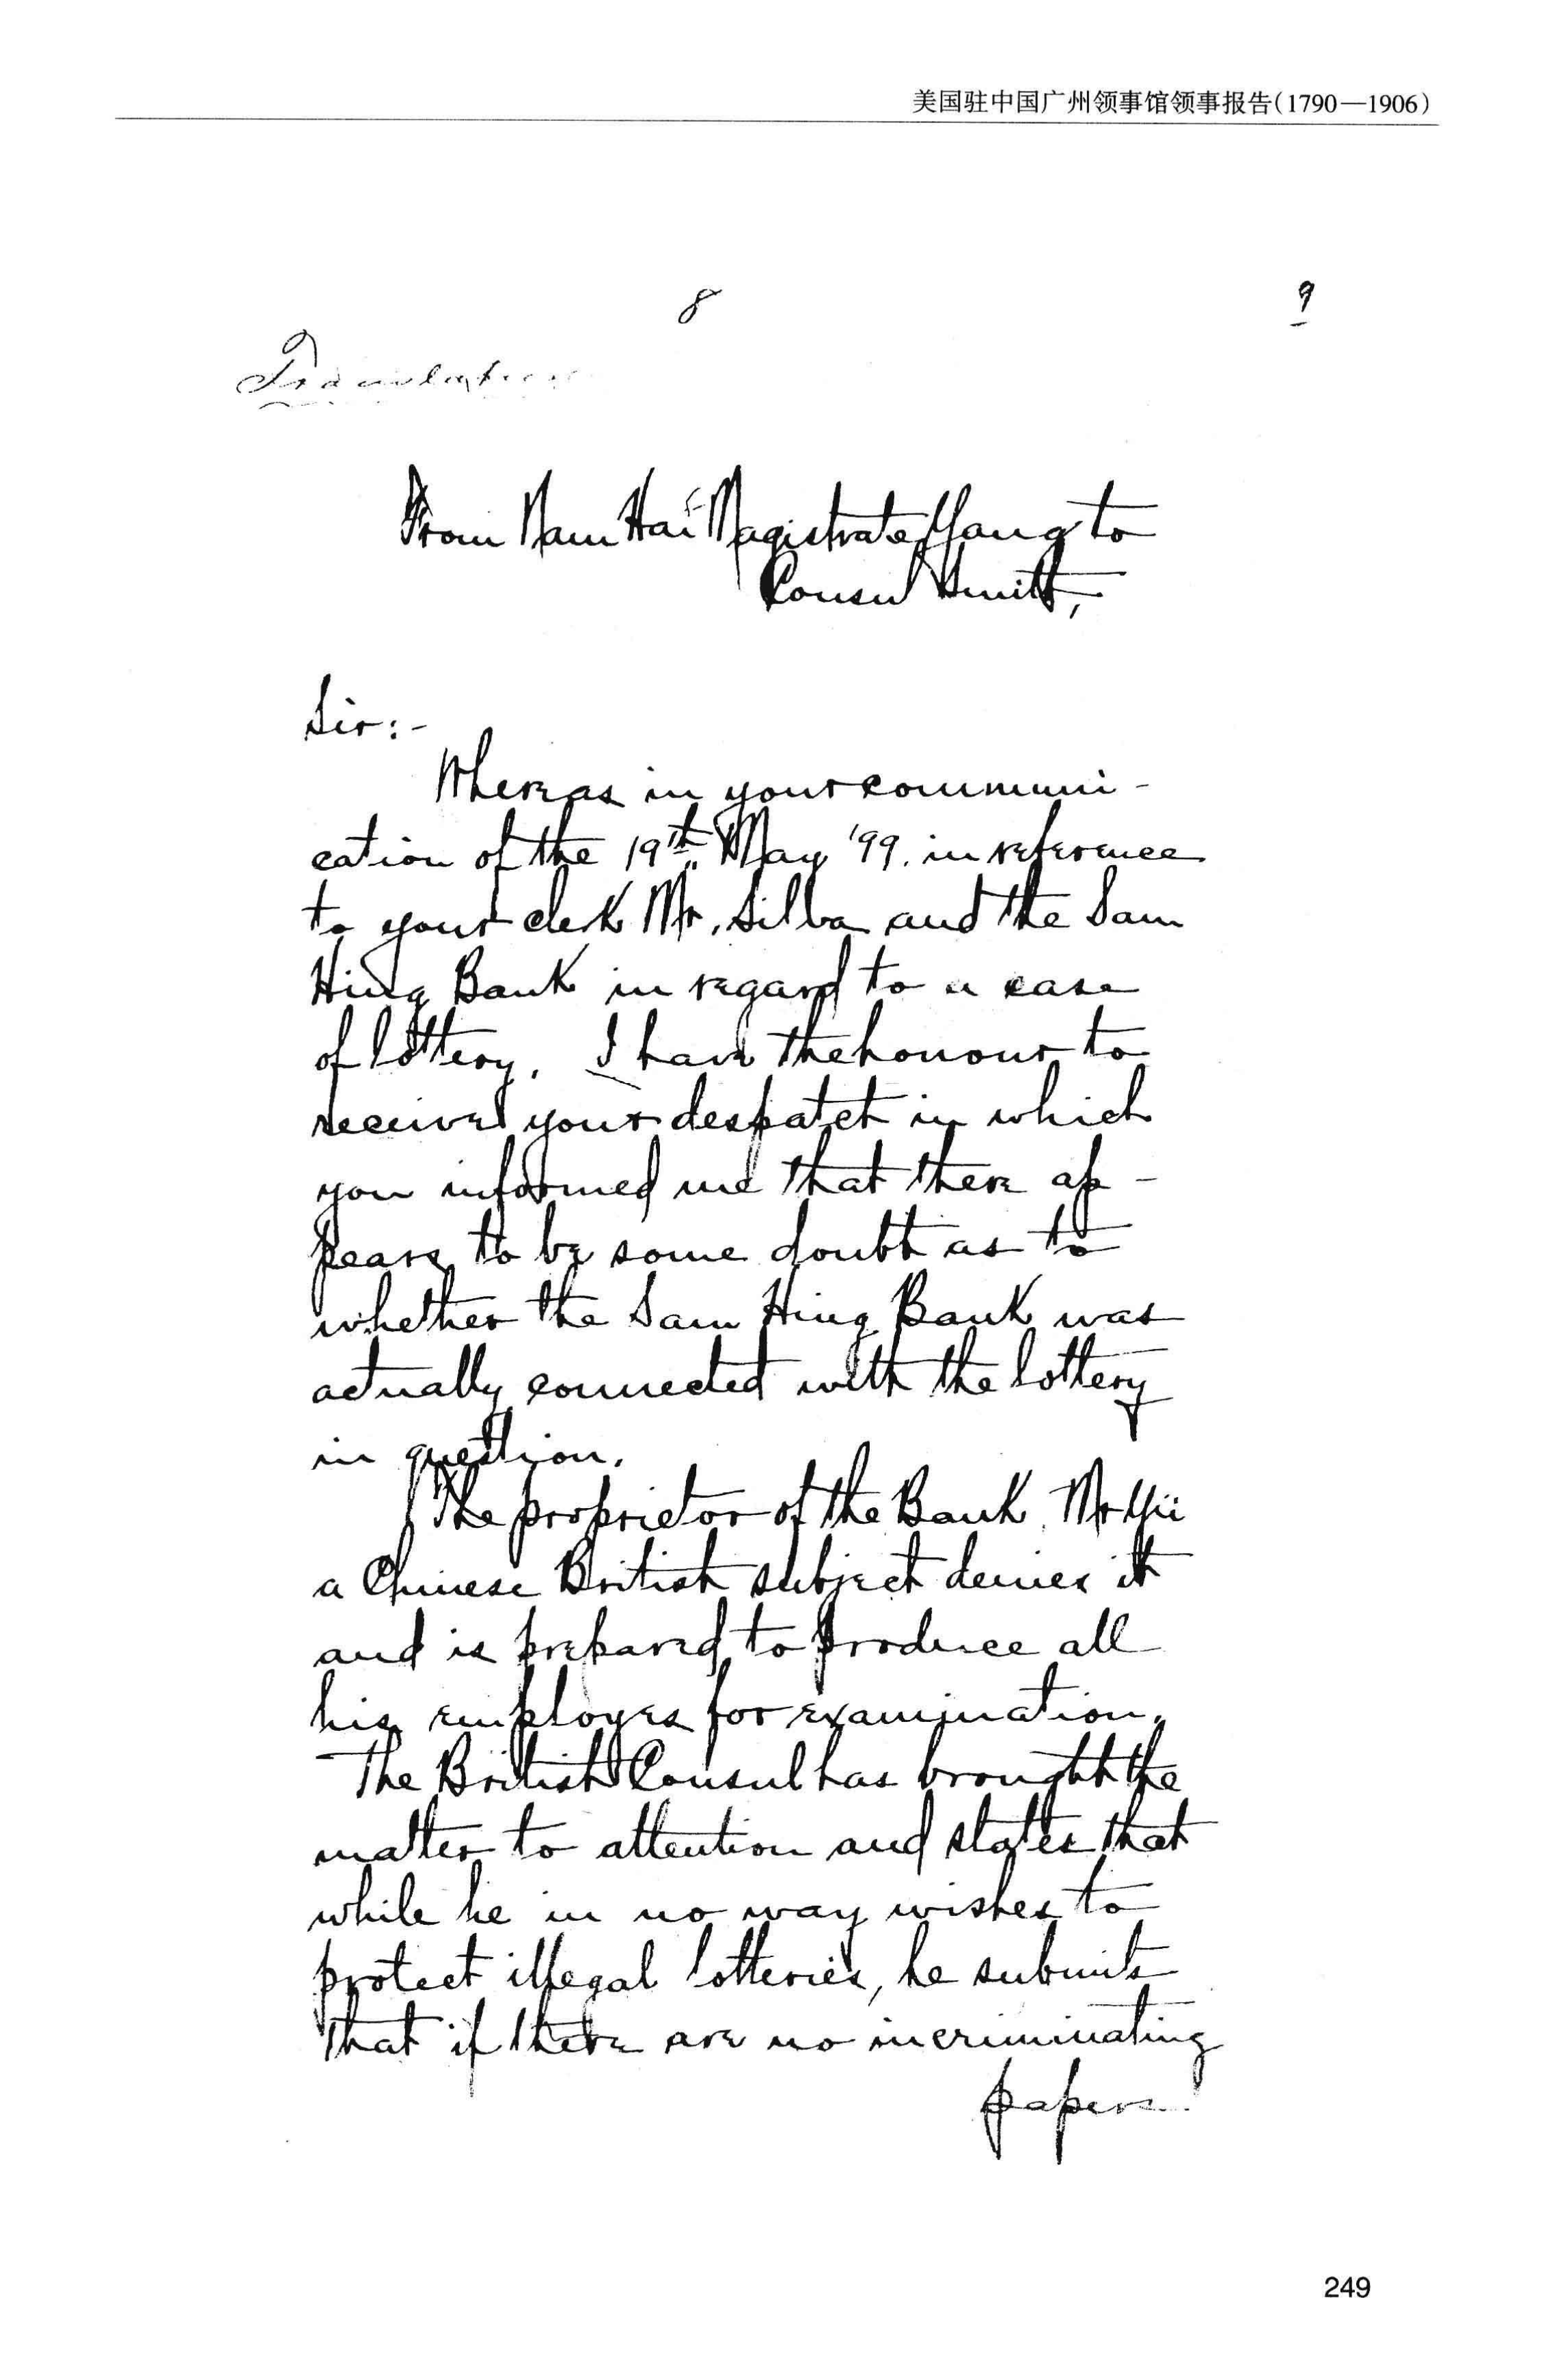 美国驻中国广州领事馆领事报告(1790—1906)
8
9
Translation
From Nam Hai Magistrate Yang to
Consul Smith,
Sir:-
Whereas in your communi-
cation of the 19th May '99. in reference
to your clerk Mr. Silva and the Sam
Hing Bank in regard to a case
of lottery. I have the honour to
receive your despatch in which
you informed me that there ap-
pears to be some doubt as to
whether the Sam Hing Bank was
actually connected with the lottery
in question.
The proprietor of the Bank Mr Yü
a Chinese British subject denies it
and is prepared to produce all
his employes for examination.
The British Consul has brought the
matter to attention and states that
while he in no way wishes to
protect illegal lotteries, he submits
that if there are no incriminating
papers
249